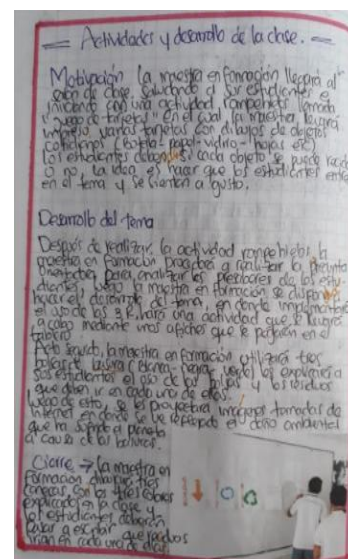 = Actividades y desarrollo de la clase. =
Motivación: La maestra en formación llegará al
salón de clase, saludando a sus estudiantes e
iniciando con una actividad rompehielos llamada
"juego de tarjetas" En el cual la maestra, llevará
impreso varias tarjetas con dibujos de objetos
cotidianos (botella-papel-vidrio-hojas etc)
Los estudiantes deben cada objeto se puede
o no, la idea es hacer que los estudiantes
en el tema y se sientan a gusto.
Desarrollo del tema
Después de realizar la actividad rompehielos la
maestra en formación procederá a realizar la pregunta
orientadora para analizar los de los estu-
diantes, luego la maestra en formación se dispondrá
hacer el desarrollo del tema, en donde implementará
el uso de las 3 R, hará una actividad que se llevará
a cabo mediante unos afiches que se pegarán en el
tablero.
Acto seguido, la maestra en formación utilizará tres
bolsas de basura (blanca-negra-verde) les explicará a
sus estudiantes el uso de las bolsas y los residuos
que deben ir en cada una de ellas.
Luego de esto, se les proyectará imágenes tomadas de
internet en donde se ve reflejado el daño ambiental
que ha sufrido el planeta
a causa de las basuras.
Cierre → la maestra en
formación dibujará tres
canecas, con los tres colores
explicados en la clase y
los estudiantes deberán
pasar a escribir que residuos
irían en cada una de ellas.